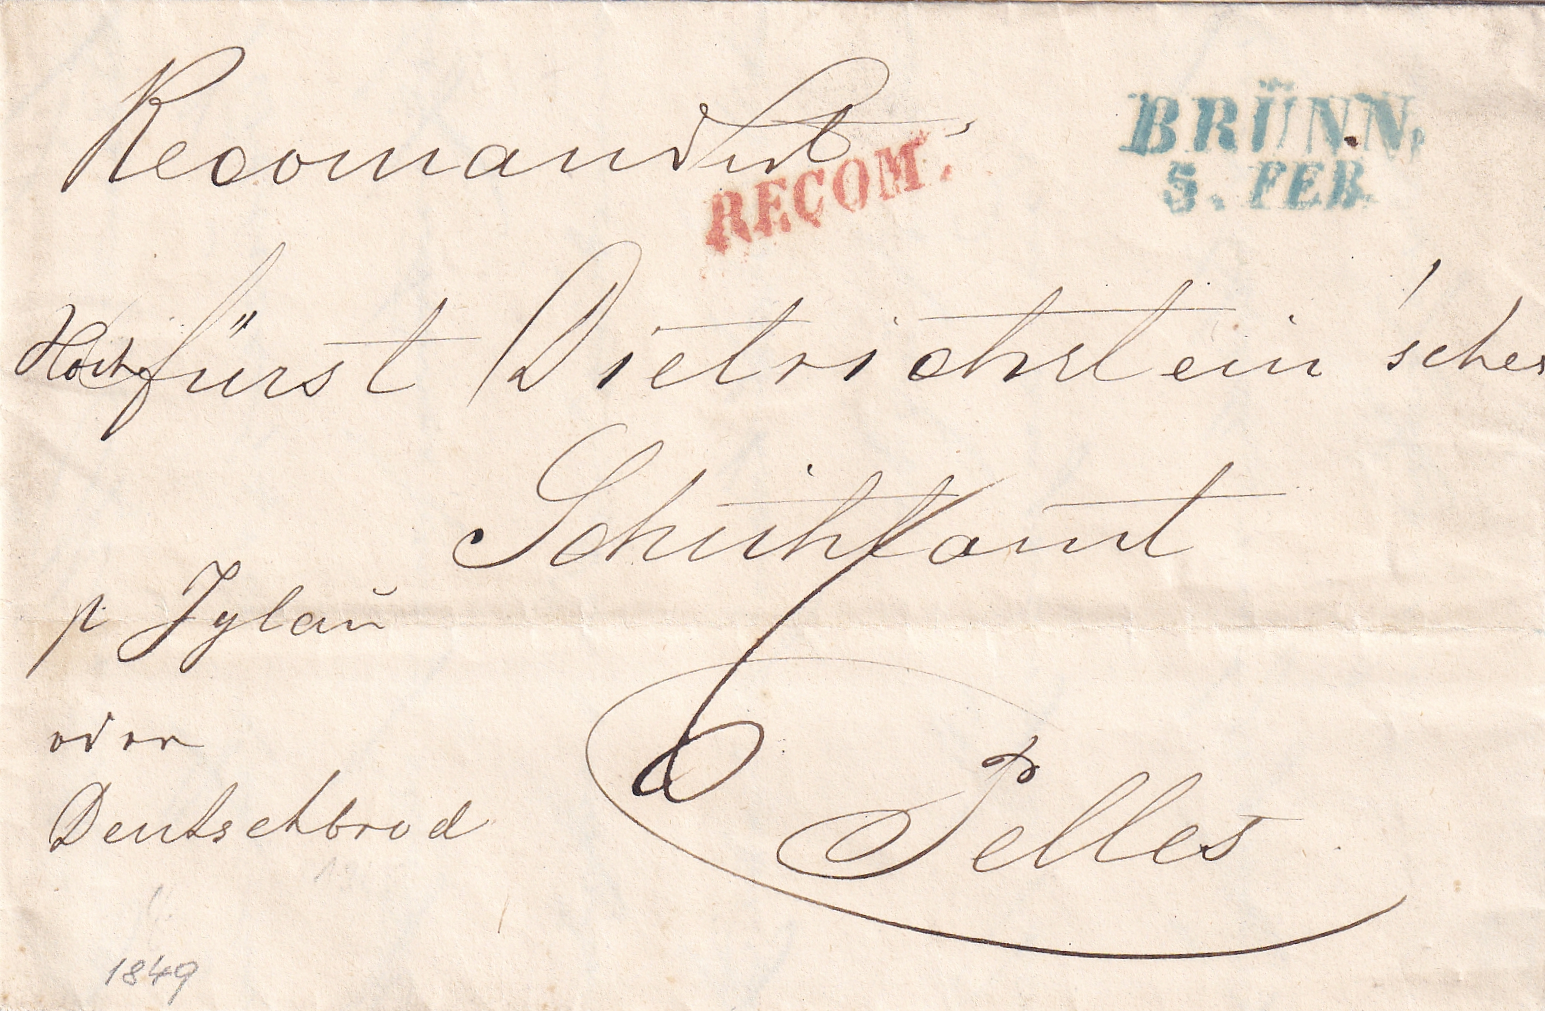 Recomandirt
RECOM.
BRÜNN.
5. FEB.
Hochfürst Dietrichstein'sches
Schichtamt
6
p Iglau
oder
Deutschbrod
Pelles
1849